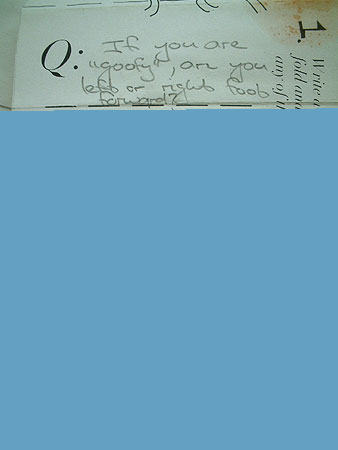 Q: If you are
"goofy", are you
left or right foot
forward?
1.
Write a
fold and
any of